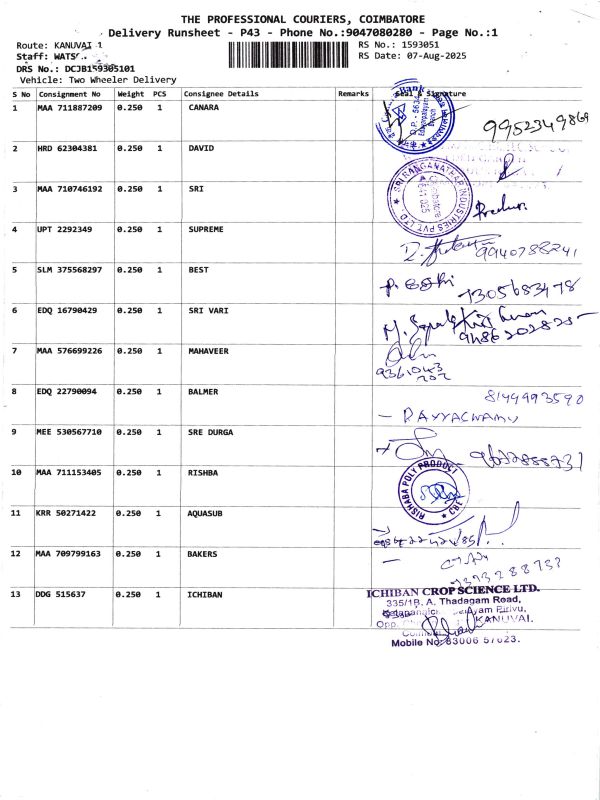 THE PROFESSIONAL COURIERS, COIMBATORE
Delivery Runsheet - P43 - Phone No.:9047080280 - Page No.:1
Route: KANUVAI 1
RS No.: 1593051
Staff:
RS Date: 07-Aug-2025
DRS No.: DCJB159305101
Vehicle: Two Wheeler Delivery
S No Consignment No Weight PCS Consignee Details Remarks Seal & Signature
1 MAA 711887209 0.250 1 CANARA 9952349869
2 HRD 62304381 0.250 1 DAVID
3 MAA 710746192 0.250 1 SRI
SRI RANGANATHAR INDUSTRIES PVT LTD.
4 UPT 2292349 0.250 1 SUPREME 9940788241
5 SLM 375568297 0.250 1 BEST 7305683478
6 EDQ 16790429 0.250 1 SRI VARI
7 MAA 576699226 0.250 1 MAHAVEER
9361043
202
8 EDQ 22790094 0.250 1 BALMER 8144993590
9 MEE 530567710 0.250 1 SRE DURGA
10 MAA 711153405 0.250 1 RISHBA
RISHABA POLY PRODUCT CBE
11 KRR 50271422 0.250 1 AQUASUB
12 MAA 709799163 0.250 1 BAKERS
13 DDG 515637 0.250 1 ICHIBAN
ICHIBAN CROP SCIENCE LTD.
335/1B, A. Thadagam Road,
Pirivu,
KANUVAI.
Mobile No: 83006 57023.